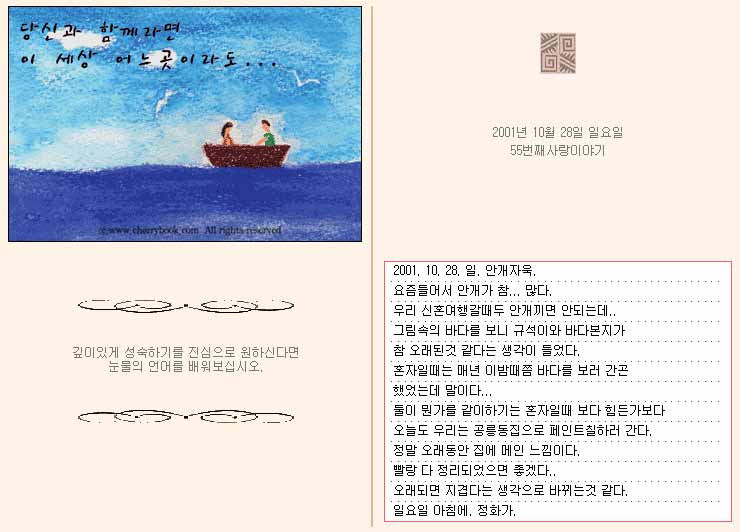 당신과 함께라면
이 세상 어느곳이라도...
ⓒ www.cheerybook.com All rights reserved
깊이있게 성숙하기를 진심으로 원하신다면
눈물의 언어를 배워보십시오.
2001년 10월 28일 일요일
55번째사랑이야기
2001. 10. 28. 일. 안개자욱.
요즘들어서 안개가 참... 많다.
우리 신혼여행갈때두 안개끼면 안되는데..
그림속의 바다를 보니 규석이와 바다본지가
참 오래된것 같다는 생각이 들었다.
혼자일때는 매년 이밤때쯤 바다를 보러 간곤
했었는데 말이다...
둘이 뭔가를 같이하기는 혼자일때 보다 힘든가보다
오늘도 우리는 공릉동집으로 페인트칠하러 간다.
정말 오래동안 집에 메인 느낌이다.
빨랑 다 정리되었으면 좋겠다..
오래되면 지겹다는 생각으로 바뀌는것 같다.
일요일 아침에. 정화가.